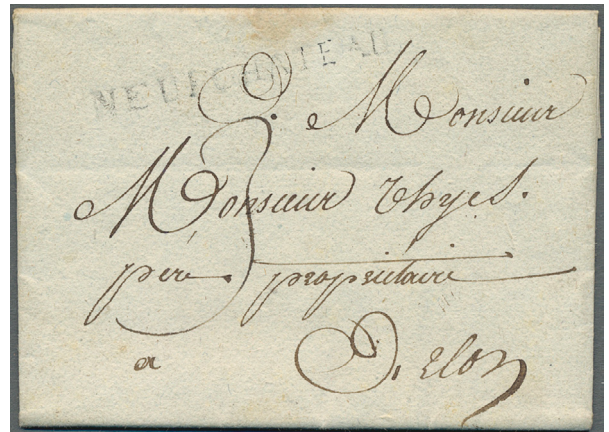 NEUFCHATEAU
A Monsieur
Monsieur Thyes.
père propriétaire
3
a D'Arlon